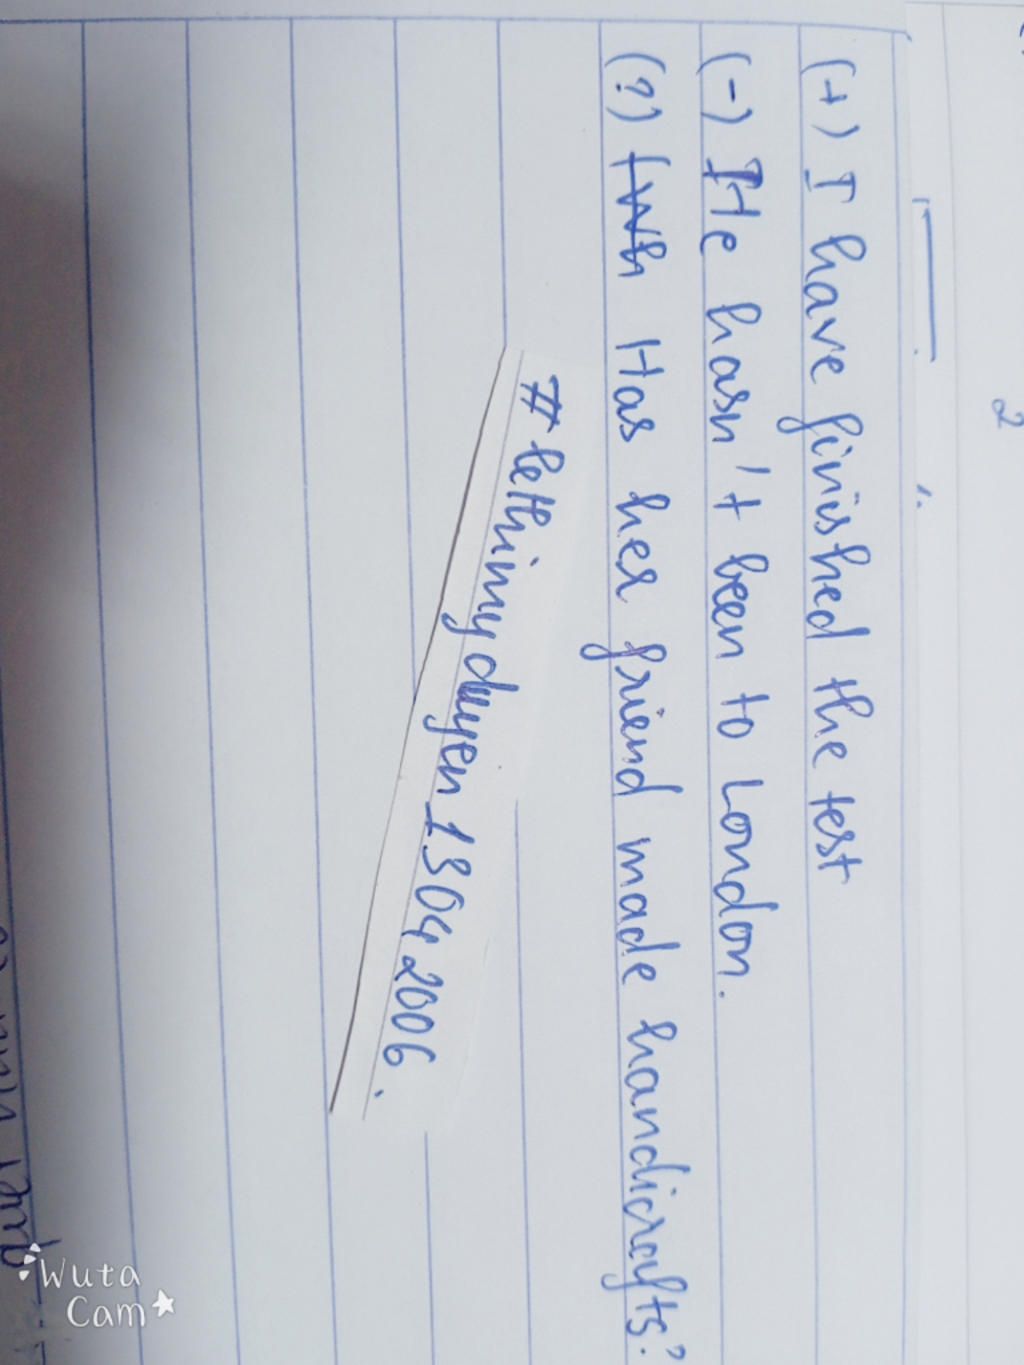 2
(+) I have finished the test
(-) He hasn't been to London.
(?) Has her friend made handicrafts?
#lethimyduyen13042006.
Wuta
Cam